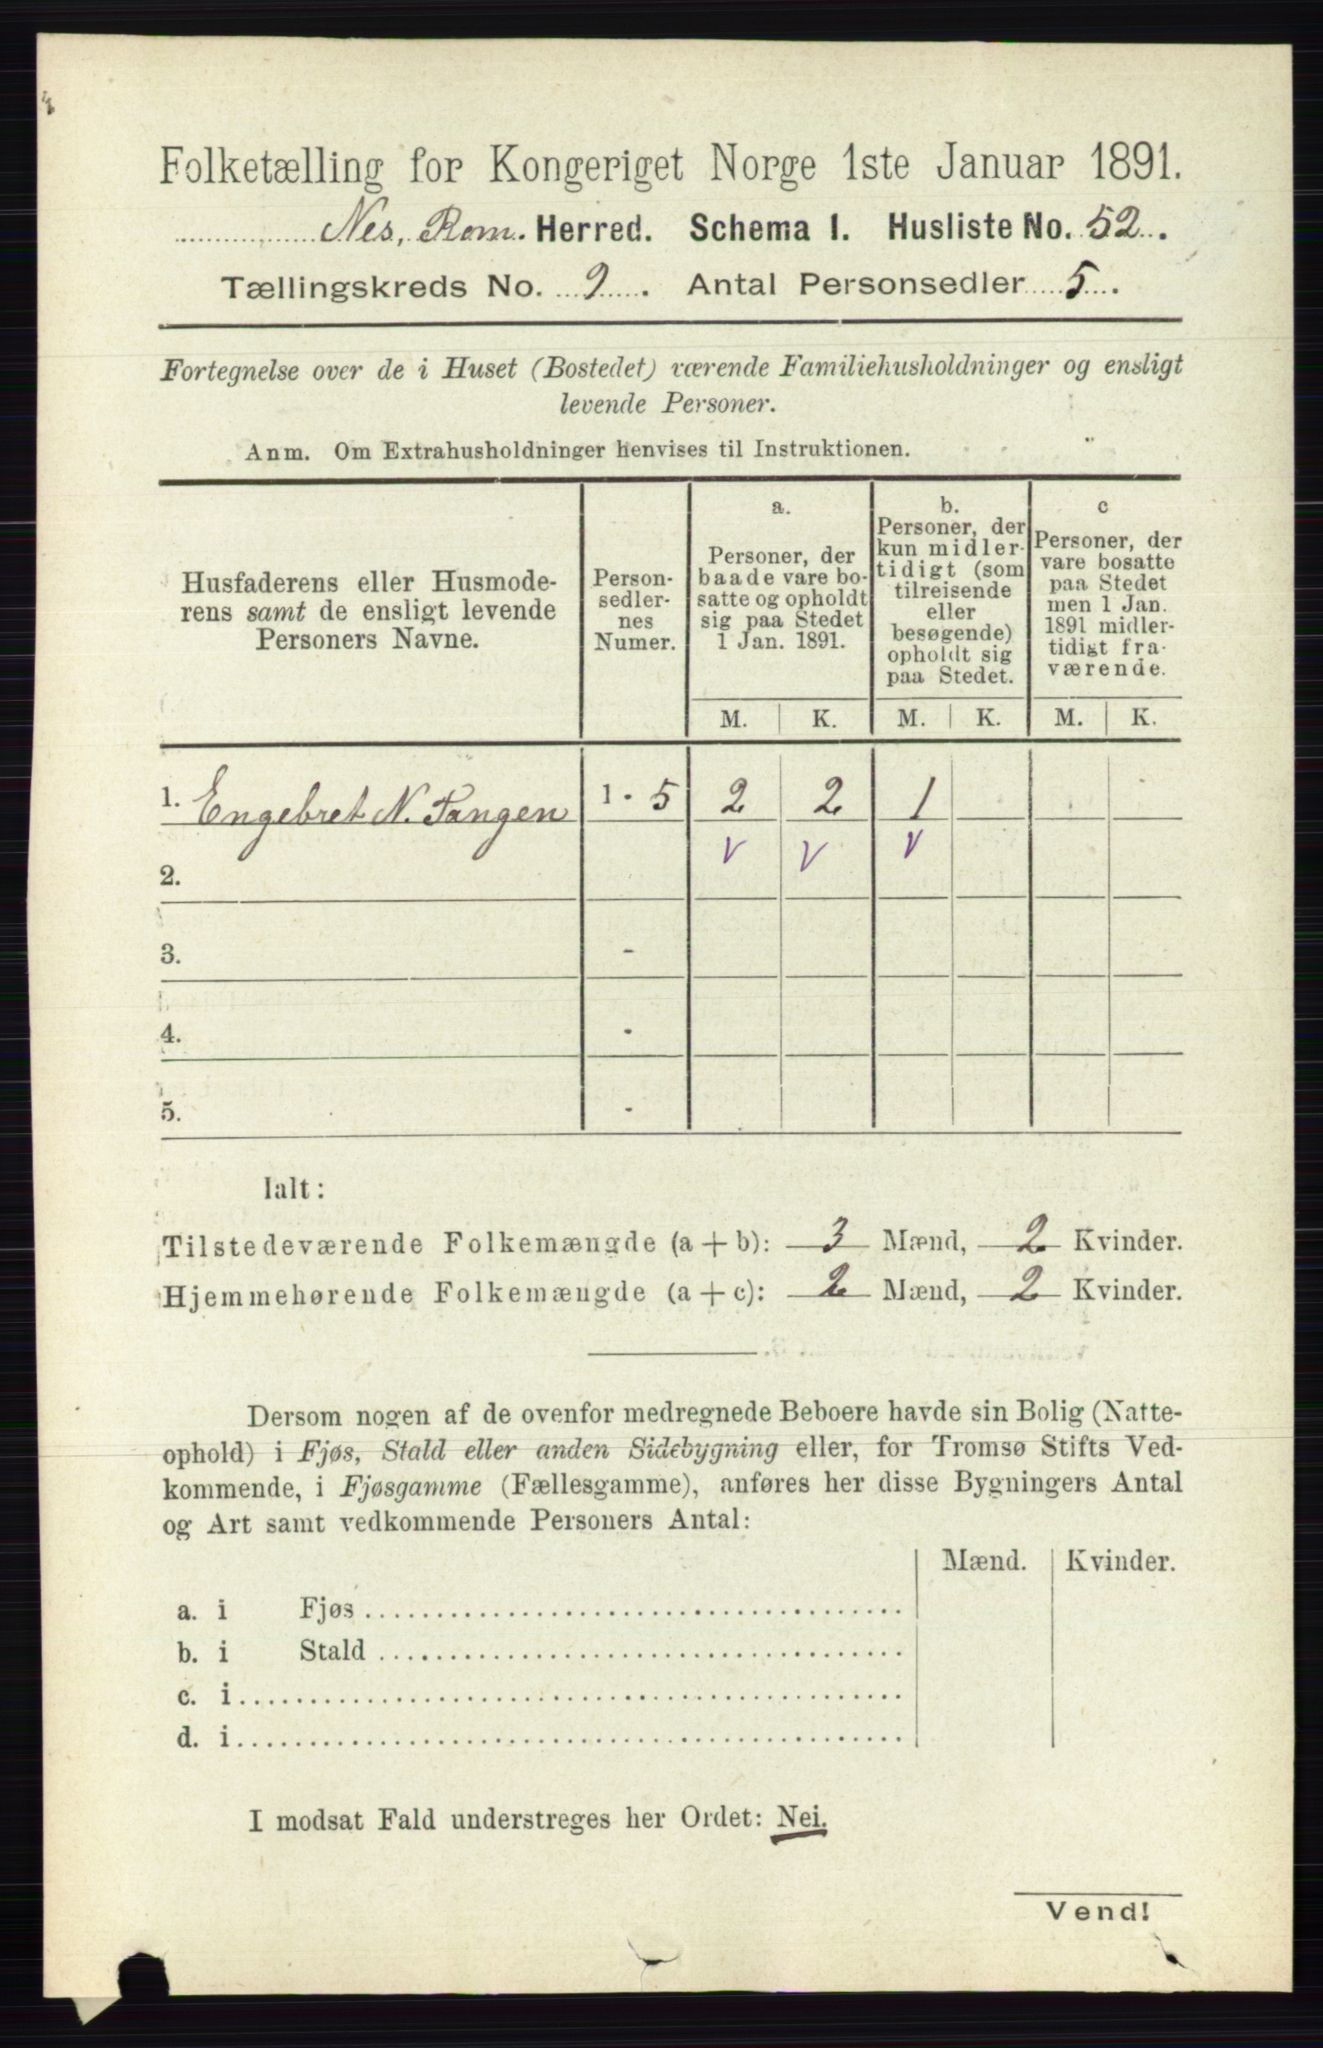 Folketælling for Kongeriget Norge 1ste Januar 1891.
Nes, Rom. Herred. Schema I. Husliste No. 52.
Tællingskreds No. 9. Antal Personsedler 5.
Fortegnelse over de i Huset (Bostedet) værende Familiehusholdninger og ensligt
levende Personer.
Anm. Om Extrahusholdninger henvises til Instruktionen.
Husfaderens eller Husmode-
rens samt de ensligt levende
Personers Navne.
Person-
sedler-
nes
Numer.
a.
Personer, der
baade vare bo-
satte og opholdt
sig paa Stedet
1 Jan. 1891.
b.
Personer, der
kun midler-
tidigt (som
tilreisende
eller
besøgende)
opholdt sig
paa Stedet.
c
Personer, der
vare bosatte
paa Stedet
men 1 Jan.
1891 midler-
tidigt fra-
værende.
M. K. M. K. M. K.
1. Engebret N. Tangen 1 - 5 2 2 1
V V V
2.
3. -
4. -
5. -
Ialt:
Tilstedeværende Folkemængde (a + b): 3 Mænd, 2 Kvinder.
Hjemmehørende Folkemængde (a + c): 2 Mænd, 2 Kvinder.
Dersom nogen af de ovenfor medregnede Beboere havde sin Bolig (Natte-
ophold) i Fjøs, Stald eller anden Sidebygning eller, for Tromsø Stifts Ved-
kommende, i Fjøsgamme (Fællesgamme), anføres her disse Bygningers Antal
og Art samt vedkommende Personers Antal:
Mænd. Kvinder.
a. i Fjøs
b. i Stald
c. i
d. i
I modsat Fald understreges her Ordet: Nei.
Vend!